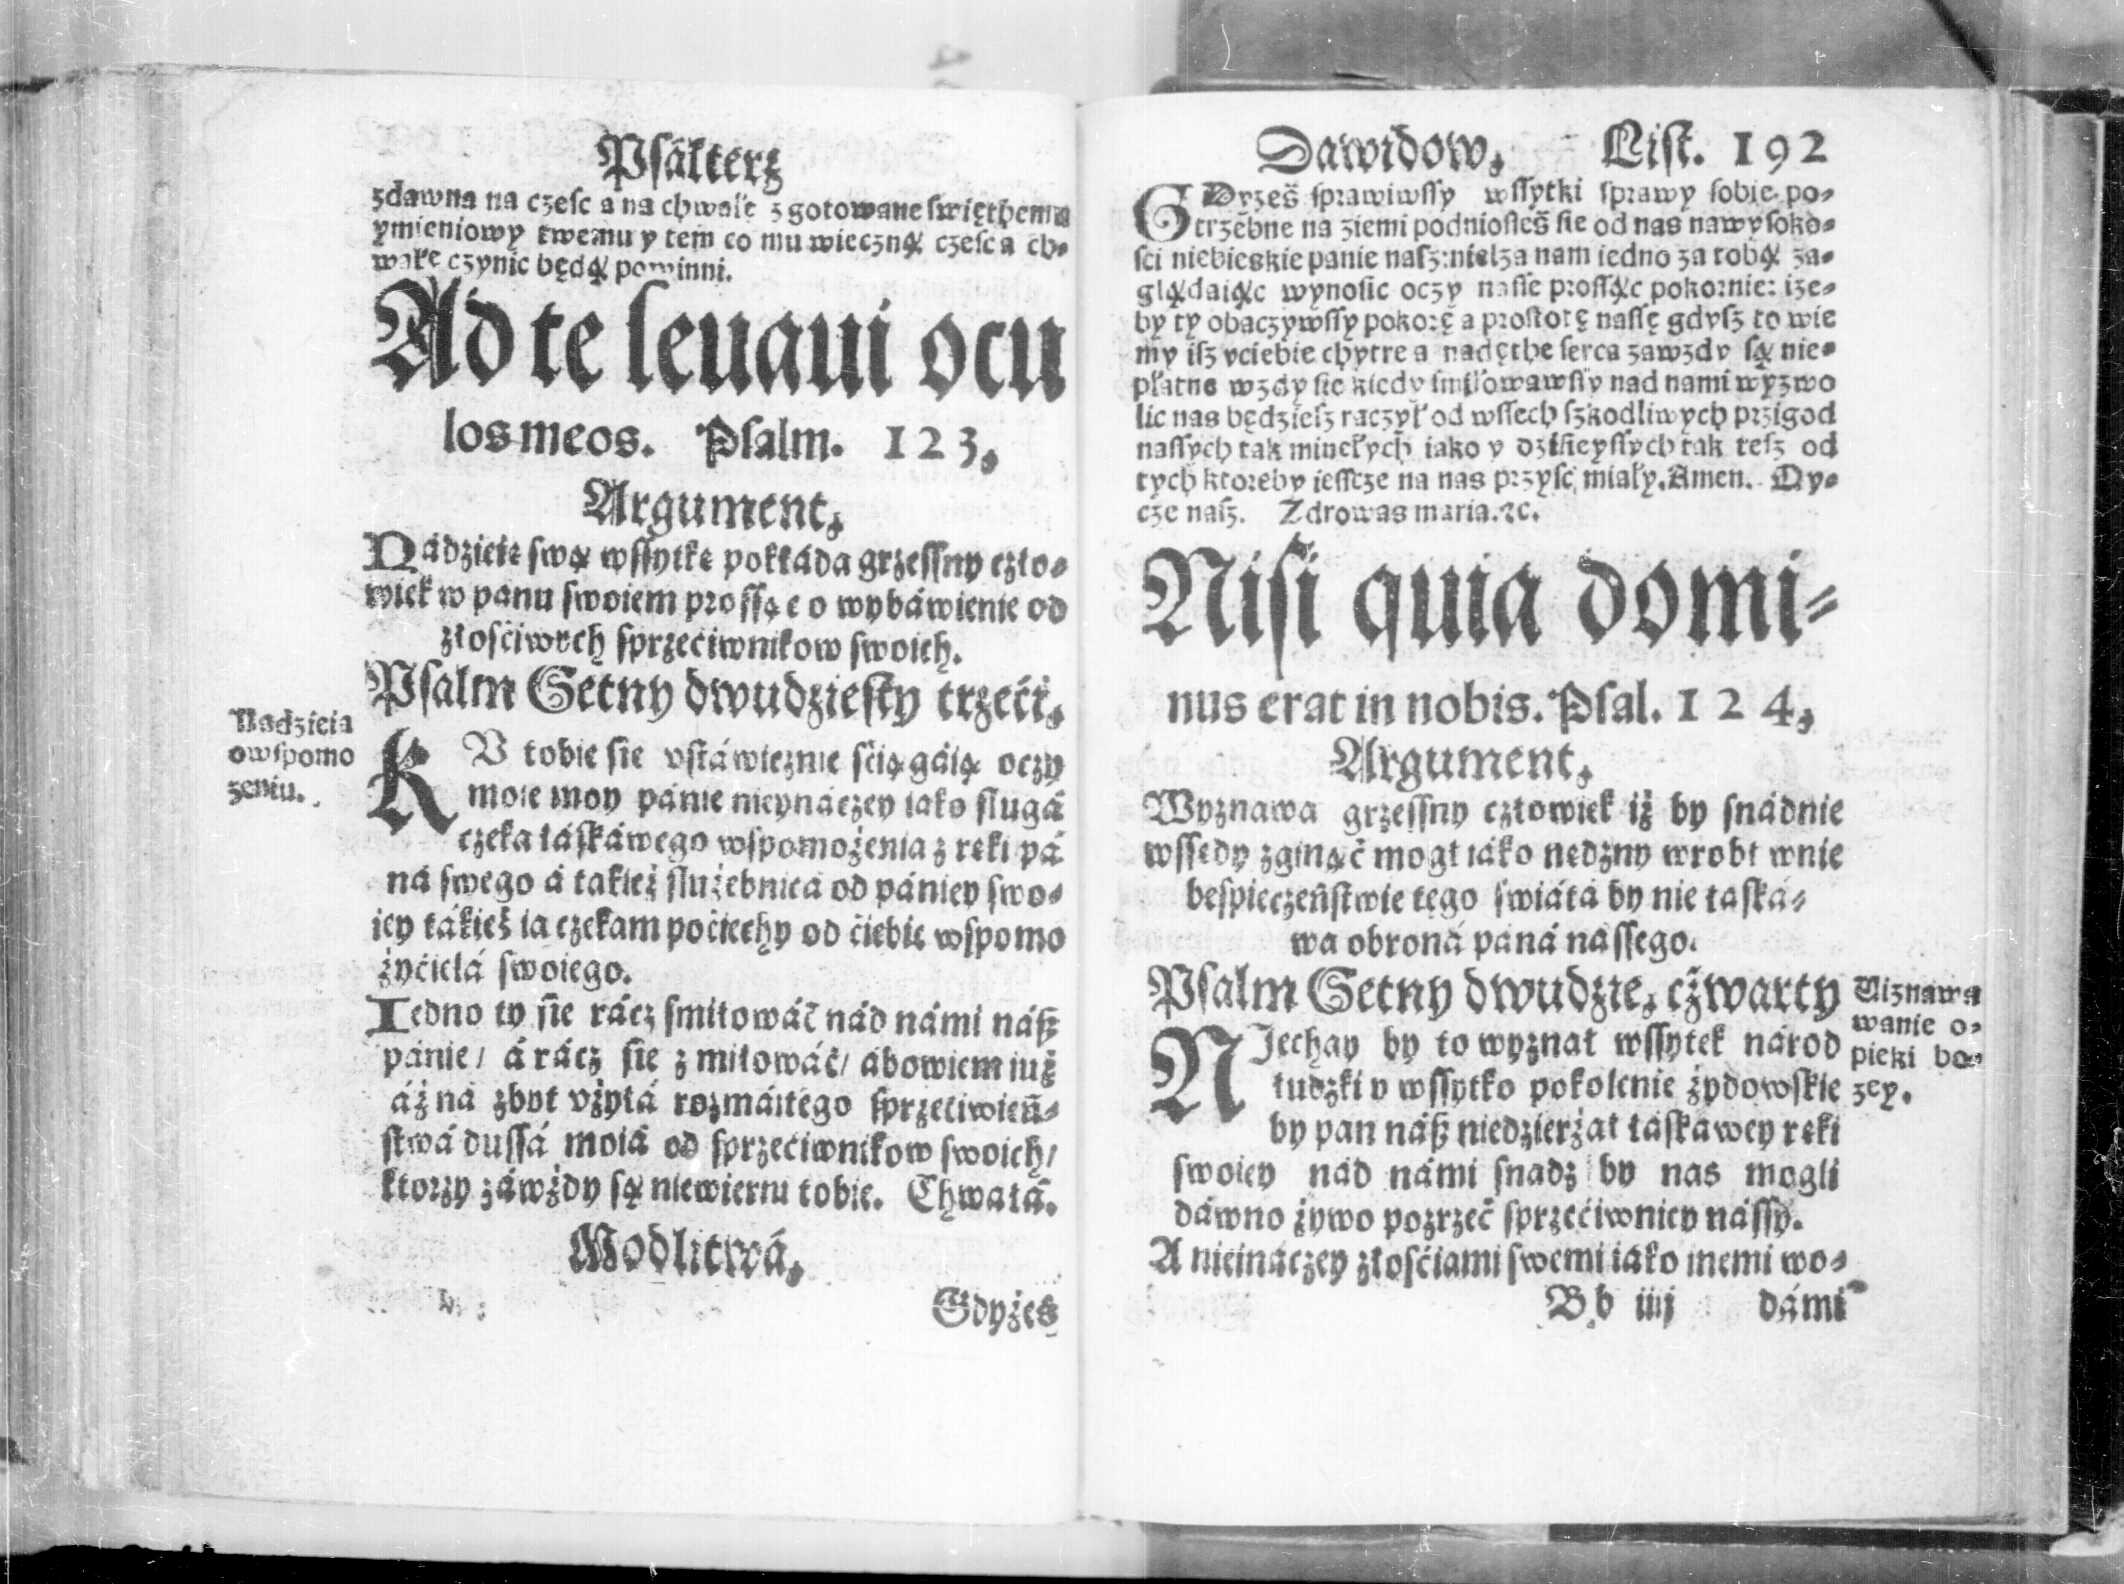 Psałterz
zdawna na czesc a na chwałe zgotowane swięthemu
ymieniowy twemu y tem co mu wieczną czesc a ch⸗
wałę czynic będą powinni.
Ad te leuaui ocu
los meos. Psalm. 123,
Argument,
Nádzieię swą wssytkę pokłáda grzessny czło⸗
wiek w panu swoiem prossąc o wybáwienie od
złośćiwych sprzećiwnikow swoich.
Psalm Setny dwudziesty trzeći,
Nadzieia
owspomo
zeniu.
KV tobie sie vstáwicznie śćiągáią oczy
moie moy pánie nieynáczey iako sługá
czeka łáskáwego wspomożenia z ręki pá
ná swego á takież służebnicá od pániey swo⸗
iey tákież ia czekam poćiechy od ćiebie wspomo
żyćielá swoiego.
Iedno ty sie rácz smiłowáć nád námi nász
pánie/ á rácz sie zmiłowáć/ ábowiem iuż
áż ná zbyt vżyłá rozmáitego sprzećiwień⸗
stwá dussá moiá od sprzećiwnikow swoich/
ktorzy záwżdy są niewierni tobie. Chwałá.
Modlitwá,
Gdyżes
Dawidow, List. 192
GDyżeś sprawiwssy wssytki sprawy sobie po⸗
trzebne na ziemi podniosłeś sie od nas nawysoko⸗
sci niebieskie panie nasz: nielza nam iedno za tobą za⸗
glądaiąc wynosic oczy nasse prossąc pokornie: ize⸗
by ty obaczywssy pokorę a prostotę nassę gdysz to wie
my isz vciebie chytre a nadęthe serca zawzdy są nie⸗
płatne wzdy sie kiedy smiłowawssy nad nami wyzwo
lic nas będziesz raczył od wssech szkodliwych przigod
nassych tak minełych iako y dzisieyssych tak tesz od
tych ktoreby iessce na nas przysc miały. Amen. Oy⸗
cze nasz. Zdrowas maria. ⁊c.
Nisi quia domi⸗
nus erat in nobis. Psal. 124,
Argument,
Wyznawa grzessny człowiek iż by snádnie
wssędy zginąć mogł iáko nędzny wrobl wnie
bespieczeństwie tego świátá by nie łaská⸗
wa obroná páná nássego.
Psalm Setny dwudzie, czwarty
Wiznawa
wanie o⸗
pieki bo⸗
zey.
NJechay by to wyznał wssytek národ
ludzki y wssytko pokolenie żydowskie
by pan nász niedzierżał łaskáwey ręki
swoiey nád námi snadz by nas mogli
dáwno żywo pozrzeć sprzećiwnicy nássy.
A nieináczey złośćiami swemi iáko inemi wo⸗
Bb iiij dámi